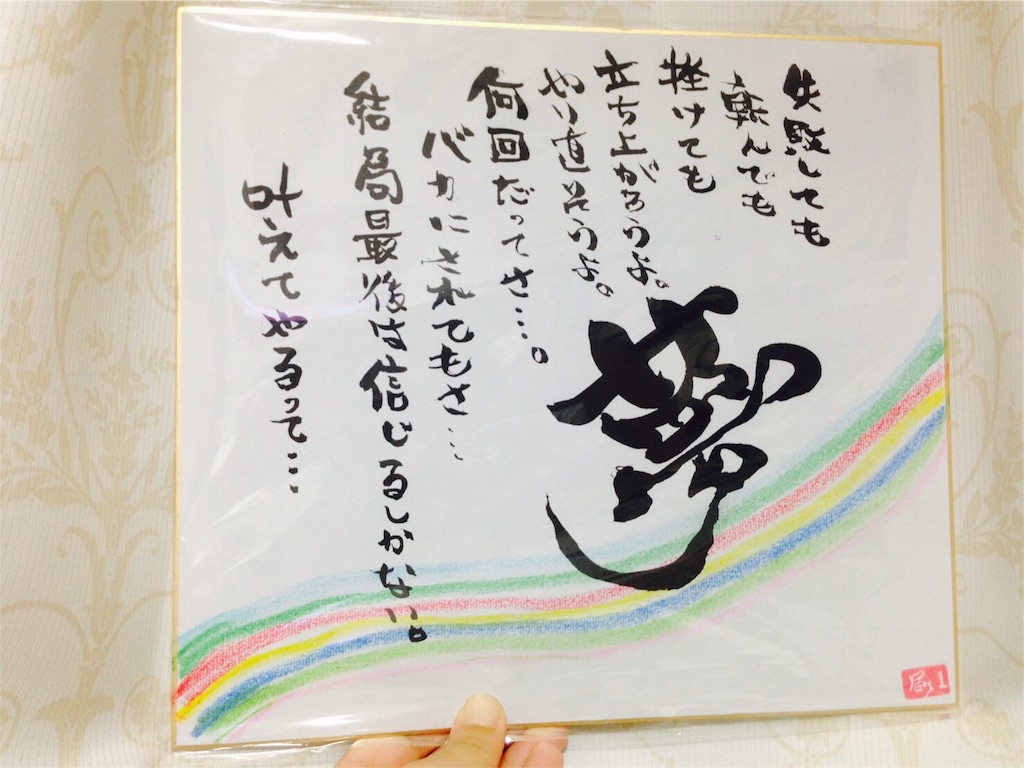 失敗しても
転んでも
挫けても
立ち上がろうよ。
やり直そうよ。
何回だってさ…。
バカにされてもさ…
結局最後は信じるしかない。
叶えてやるって…
夢